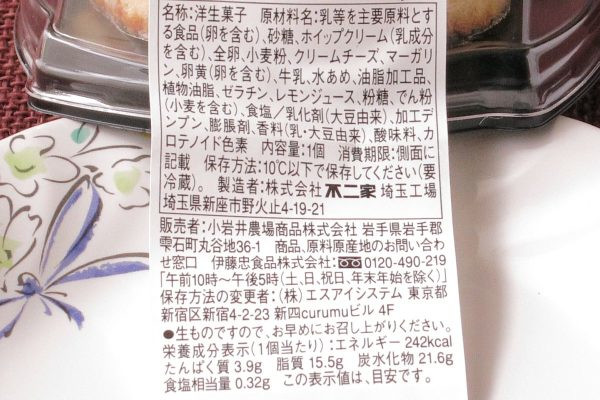 名称:洋生菓子　原材料名:乳等を主要原料とす
る食品(卵を含む)、砂糖、ホイップクリーム(乳成分
を含む)、全卵、小麦粉、クリームチーズ、マーガリ
ン、卵黄(卵を含む)、牛乳、水あめ、油脂加工品、
植物油脂、ゼラチン、レモンジュース、粉糖、でん粉
(小麦を含む)、食塩／乳化剤(大豆由来)、加工デ
ンプン、膨脹剤、香料(乳・大豆由来)、酸味料、カ
ロテノイド色素　内容量:1個　消費期限:側面に
記載　保存方法:10℃以下で保存してください(要
冷蔵)。　製造者:株式会社 不二家 埼玉工場
埼玉県新座市野火止4-19-21
販売者:小岩井農場商品株式会社 岩手県岩手郡
雫石町丸谷地36-1　商品、原料原産地のお問い合わ
せ窓口　伊藤忠食品株式会社:0120-490-219
「午前10時～午後5時(土、日、祝日、年末年始を除く)」
保存方法の変更者:(株)エスアイシステム 東京都
新宿区新宿4-2-23 新四curumuビル 4F
●生ものですので、お早めにお召し上がりください。
栄養成分表示(1個当たり):エネルギー 242kcal
たんぱく質 3.9g　脂質 15.5g　炭水化物 21.6g
食塩相当量 0.32g　この表示値は、目安です。